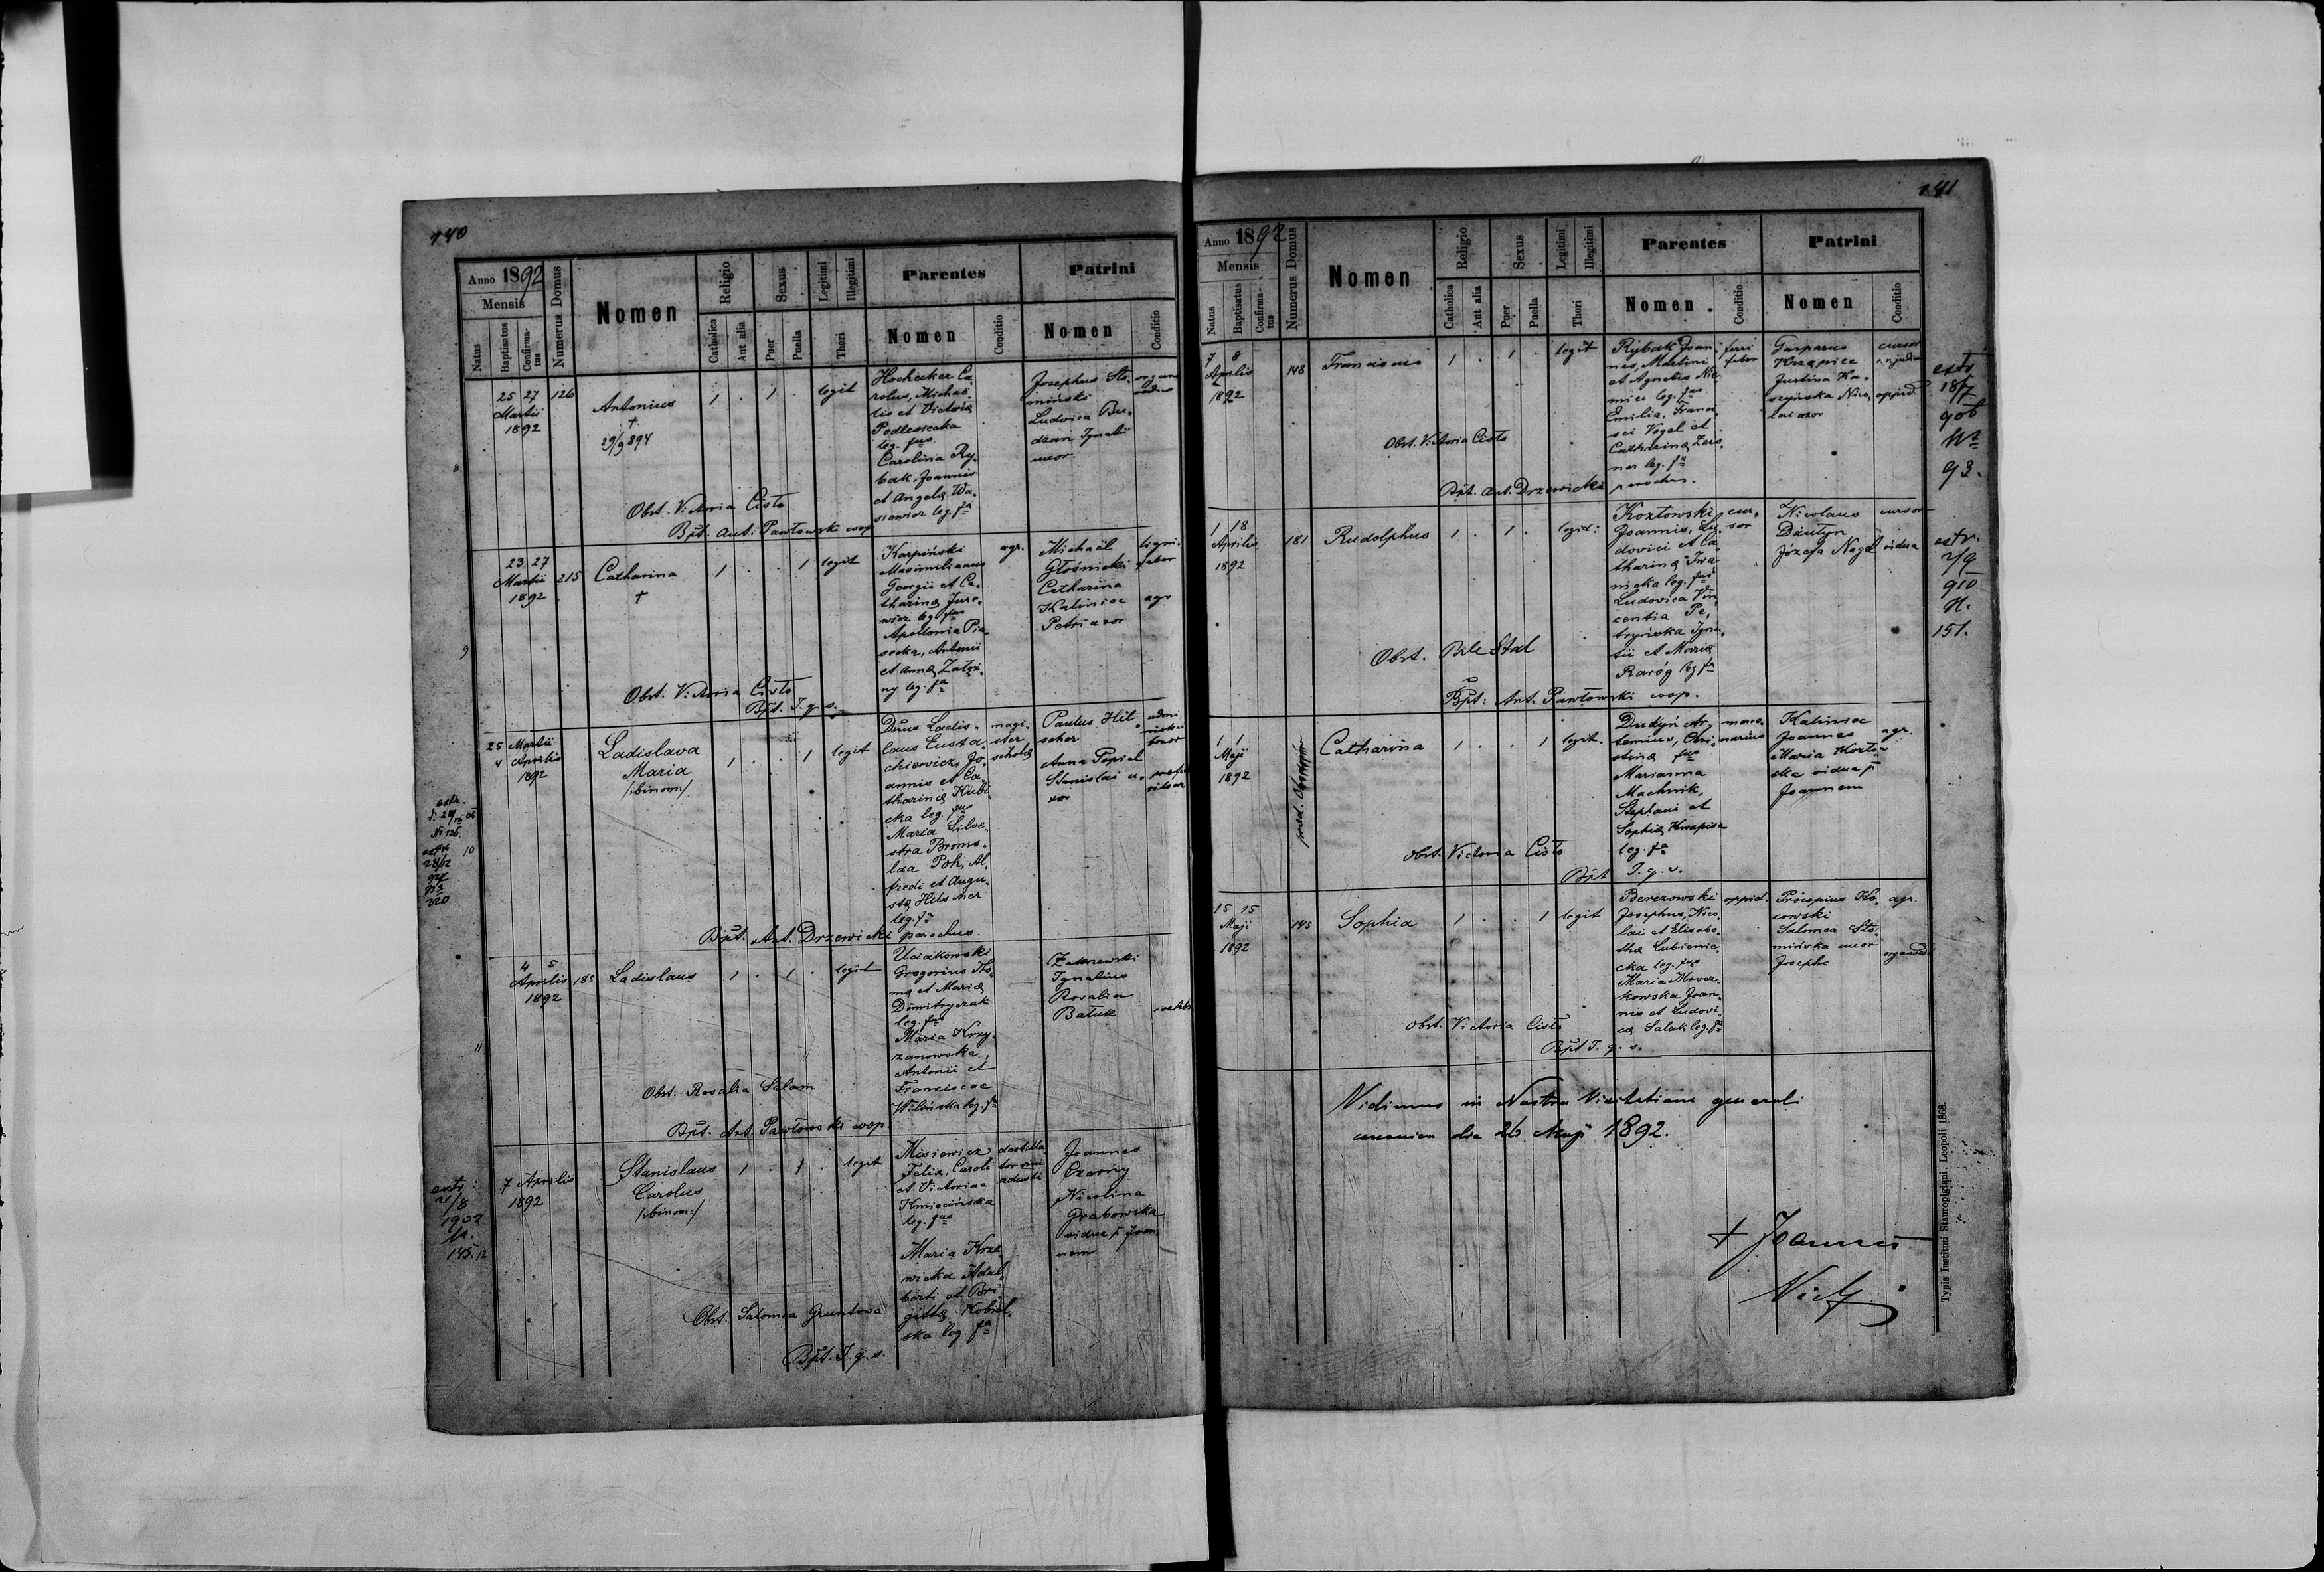 140
Anno 1892
Mensis
Natus
Baptisatus
Confirma-
tus
Numerus Domus
Nomen
Religio
Catholica
Aut alia
Sexus
Puer
Puella
Legitimi
Illegitimi
Thori
Parentes
Nomen
Conditio
Patrini
Nomen
Conditio
8
25 27
Martii
1892
126
Antonius
†
29/9 894
1 . 1 . legit
Hochecker Ca-
rolus, Michae-
lis et Victoria
Podlesiecka
leg. fus
Carolina Ry-
bak, Joannis
et Angelæ Wa-
siewicz leg. fa
Josephus Sto-
miński
Ludovica Bu-
dzan Ignatii
uxor
Obst. Victoria Cisło
Bpt. Ant. Pawłowski coop.
9
23 27
Martii
1892
215
Catharina
†
1 . . 1 legit
Karpiński
Maximilianus
Georgii et Ca-
tharinæ Jure-
wicz leg. fus
Apollonia Pia-
secka, Antonii
et Annæ Załęż-
ny leg. fa
agr.
Michaël
Głośnicki
Catharina
Kaliniec
Petri uxor
ligni-
faber
agr
Obst. Victoria Cisło
Bpt. I. q. s.
10
25 Martii
4 Aprilis
1892
Ladislava
Maria
/:binom:/
1 . . 1 legit
Dnus Ladis-
laus Eusta-
chiewicz, Jo-
annis et Ca-
tharinæ Kubi-
cka leg. fus
Maria Silve-
stra Bronis-
laa Poh, Al-
fredi et Augu-
stæ Hilscher
leg. fa
magi-
ster
scholæ
Paulus Hil-
scher
Anna Papiel
Stanislai u-
xor
Bpt. Ant. Drzewicki parochus.
11
4 5
Aprilis
1892
185
Ladislaus
1 . 1 . legit
Uciakowski
Gregorius Tho-
mæ et Mariæ
Dmitryczak
leg. fus
Maria Krzy-
zanowska,
Antonii et
Franciscae
Wilińska leg. fa
Zakrzewski
Ignatius
Rosalia
Batuk
Obst. Rosalia Salam
Bpt. Ant. Pawłowski coop.
extr:
21/8
1902
No.
145.
12
7 Aprilis
1892
Stanislaus
Carolus
/:binom:/
1 . 1 . legit
Misiewicz
Felix, Caroli
et Victorina
Kmiecińska
leg. fus
Maria Krze-
wicka Adal-
berti et Bri-
gittæ Kobiel-
ska leg. fa
destilla-
tor vini
adusti
Joannes
Czarny
Nicolina
Grabowska
vidua p. Joan-
nem
Obst. Salomea Gruntowa
Bpt. I. q. s.
141
Anno 1892
Mensis
Natus
Baptisatus
Confirma-
tus
Numerus Domus
Nomen
Religio
Catholica
Aut alia
Sexus
Puer
Puella
Legitimi
Illegitimi
Thori
Parentes
Nomen
Conditio
Patrini
Nomen
Conditio
7 8
Aprilis
1892
148
1 . 1 . legit
Rybak Joan-
nes, Martini
et Agnetis Nie-
miec leg. fus
Emilia, Franci-
sci Vogel et
Catharinæ Zeis-
ner leg. fa
ferri
faber
Gasparus
Krzapiec
Justina Ka-
Nico-
lai uxor
cursor
oppid.
Obst. Victoria Cisło
Bpt. Ant. Drzewicki parochus.
extr
18/7
906
No
93.
1 18
Aprilis
1892
181
Rudolphus
1 . 1 . legit:
Kozłowski
Joannis, Lu-
dovici et Ca-
tharinæ Iwa-
nicka leg. fus
Ludovica Vin-
centia Pe-
tryńska Igna-
tii et Mariæ
Raróg leg. fa
cur-
sor
Nicolaus
Dżułyn
Józefa Nagel
cursor
vidua
Obst. Stal
Bpt: Ant. Pawłowski coop.
extr.
2/9
910
N.
151.
1 1
Maji
1892
Catharina
1 . . 1 legit.
Dudyń Ar-
temius, Chri-
stinæ fus
Marianna
Machnik,
Stephani et
Sophiæ Kwapisz
leg. fa
merce-
narius
Kaliniec
Joannes
Maria Kozłow-
ska vidua p.
Joannem
agr.
Obst. Victoria Cisło
Bpt I. q. s.
15 15
Maji
1892
145
Sophia
1 . . 1 legit
Berezowski
Josephus, Nico-
lai et Elisabe-
thæ Lubienie-
cka leg. fus
Maria Moroz-
kowska Joan-
nis et Ludovi-
cæ Salak leg. fa
oppid.
Procopius Ko-
cowski
Salomea Sto-
mińska uxor
Josephi
agr.
Obst. Victoria Cisło
Bpt I. q. s.
Vidimus in Nostra Visitatione generali
canonica die 26 Maji 1892.
† Joannes
Typis Instituti Stauropigiani. Leopoli 1868.